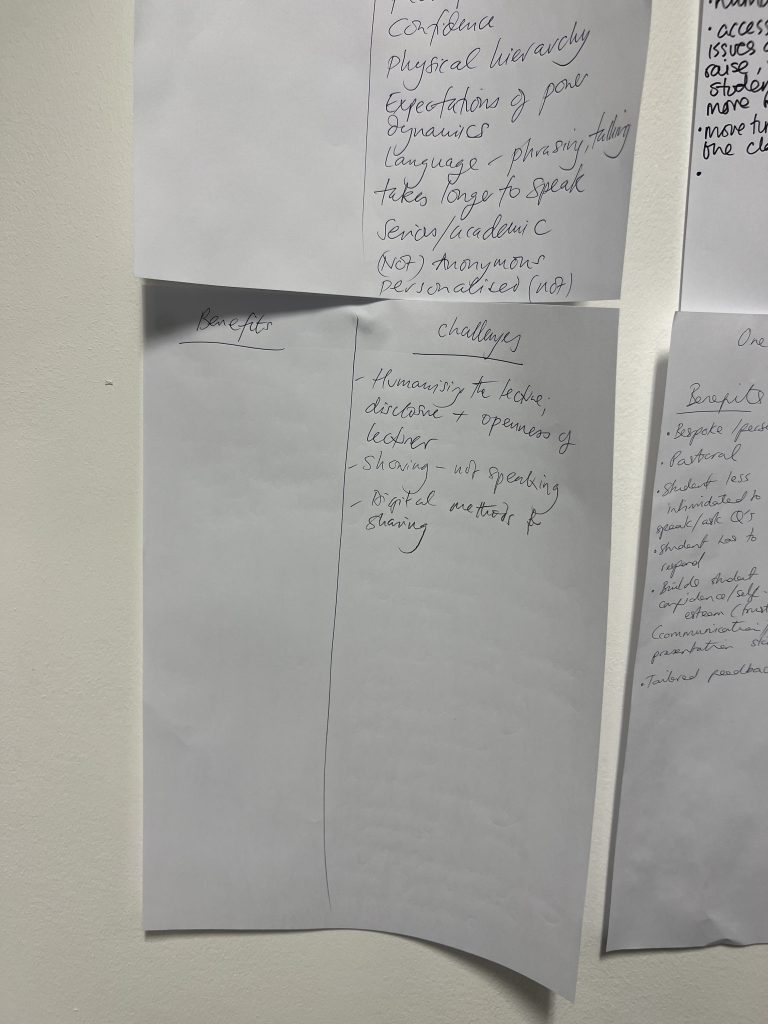 Confidence
Physical hierarchy
Expectations of power
dynamics
Language - phrasing, talking
takes longer to speak
Serious/academic
(Not) Anonymous
personalised (not)
Benefits
Challenges
- Humanising the lecture;
disclosure + openness of
lecturer
- Showing - not speaking
- Digital methods &
sharing
· access
issues
raise,
studen
more
· move
one cla
·
One
Benefits
· Bespoke / perso
· Pastoral
· Student less
intimidated to
speak/ask Q's
· Student has to
respond
· Builds student
confidence/self-
esteem (trust
(communication/
presentation
· Tailored feedbac